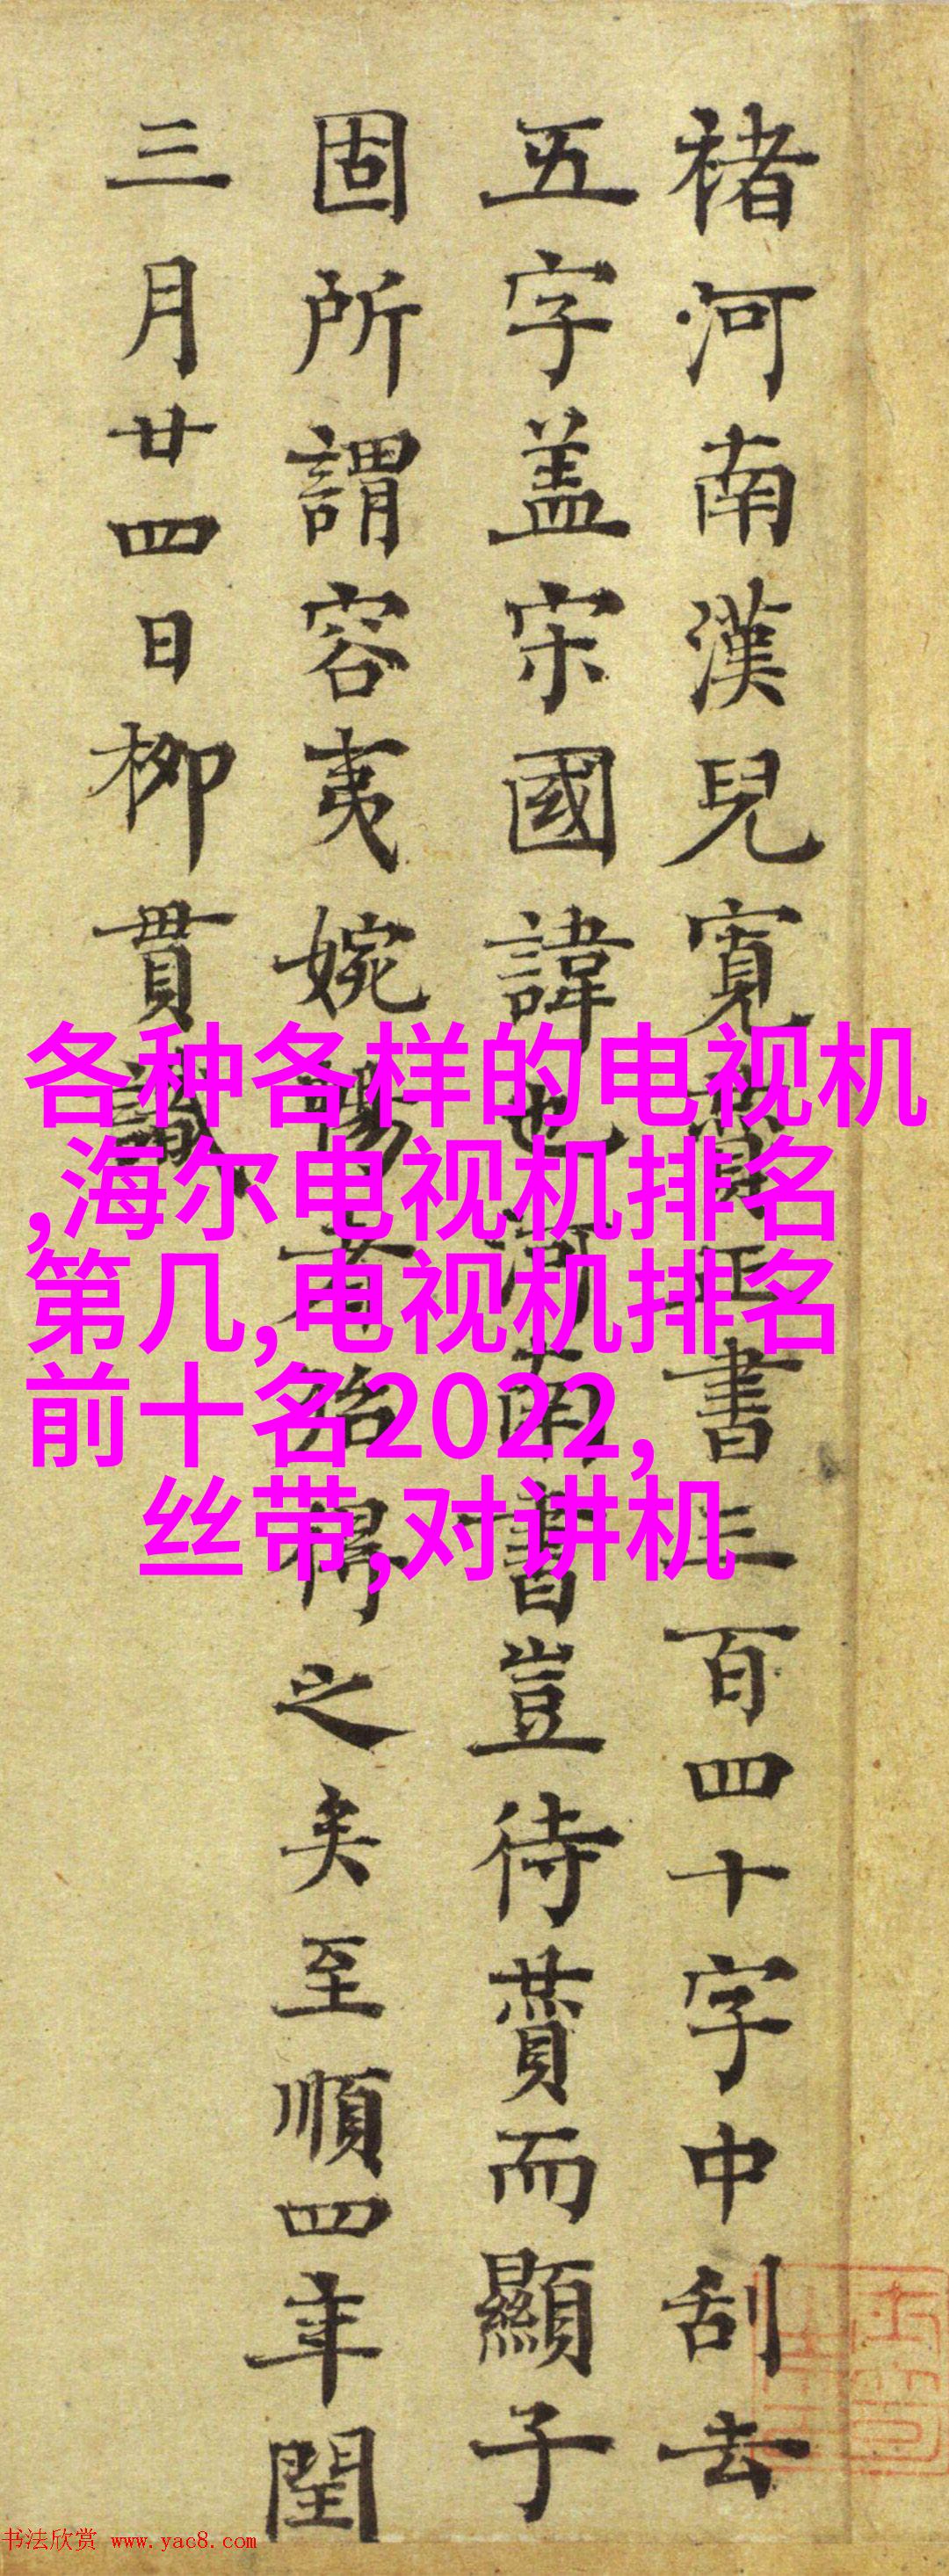 褚河南漢兒寬贊正書三百四十字中刮去
五字盖宋國諱也河南書豈待賛而顯子
固所謂容夷婉暢者殆得之矣至順四年閏
三月廿四日柳貫識
各种各样的电视机
,海尔电视机排名
第几,电视机排名
前十名2022,
丝带,对讲机
书法欣赏 www.yac8.com